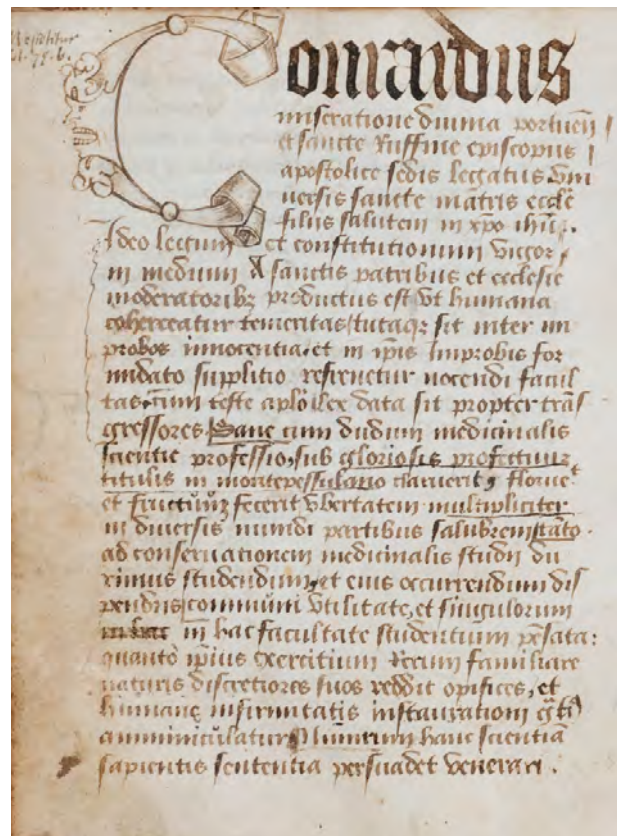 Conrardus
miseratione divina portuen̄
et sancte Ruffine episcopus
apostolice sedis legatus vni
versis sancte matris eccl̄e
filiis salutem in xp̄o ihū.
Ideo lectum et constitutionum vigor
in medium A sanctis patribus et ecclesie
moderatoribꝫ productus est vt humana
coherceatur temeritas tutaqꝫ sit inter im
probos innocentia, et in ip̄is Improbis for
midato supplitio refrenetur nocendi facul
tas, cum teste ap̄lo lex data sit propter trās
gressores Sane cum dudum medicinalis
scientie professio, sub gloriosis profectuuꝫ
titulis in montepessulano claruerit, floruet
et fructuūꝫ fecerit vbertatem multipliciter
in diversis mundi partibus salubrem, statō
ad conservationem medicinalis studii du
ximus studendum, et eius occurrendum dis
pendiis communi vtilitate, et singulorum
in hac in hac facultate studentium pēsata:
quanto ip̄ius exercitium Rerum familiare
naturis discretiores suos reddit opifices, et
humane infirmitatis instaurationi
amminiculatur Nimirum hanc scientiā
sapientis sententia persuadet venerari.